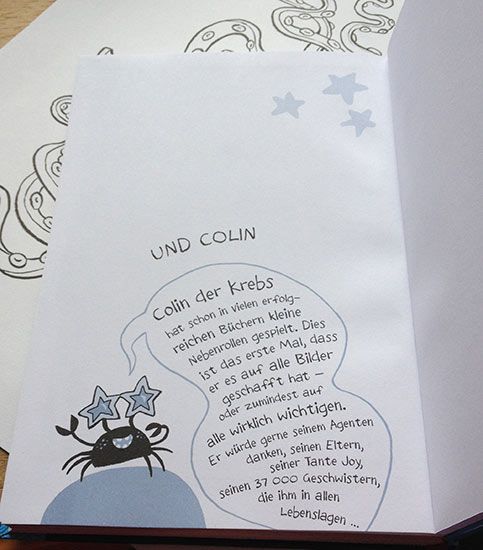 UND COLIN
Colin der Krebs
hat schon in vielen erfolg-
reichen Büchern kleine
Nebenrollen gespielt. Dies
ist das erste Mal, dass
er es auf alle Bilder
geschafft hat –
oder zumindest auf
alle wirklich wichtigen.
Er würde gerne seinem Agenten
danken, seinen Eltern,
seiner Tante Joy,
seinen 37 000 Geschwistern,
die ihm in allen
Lebenslagen ...